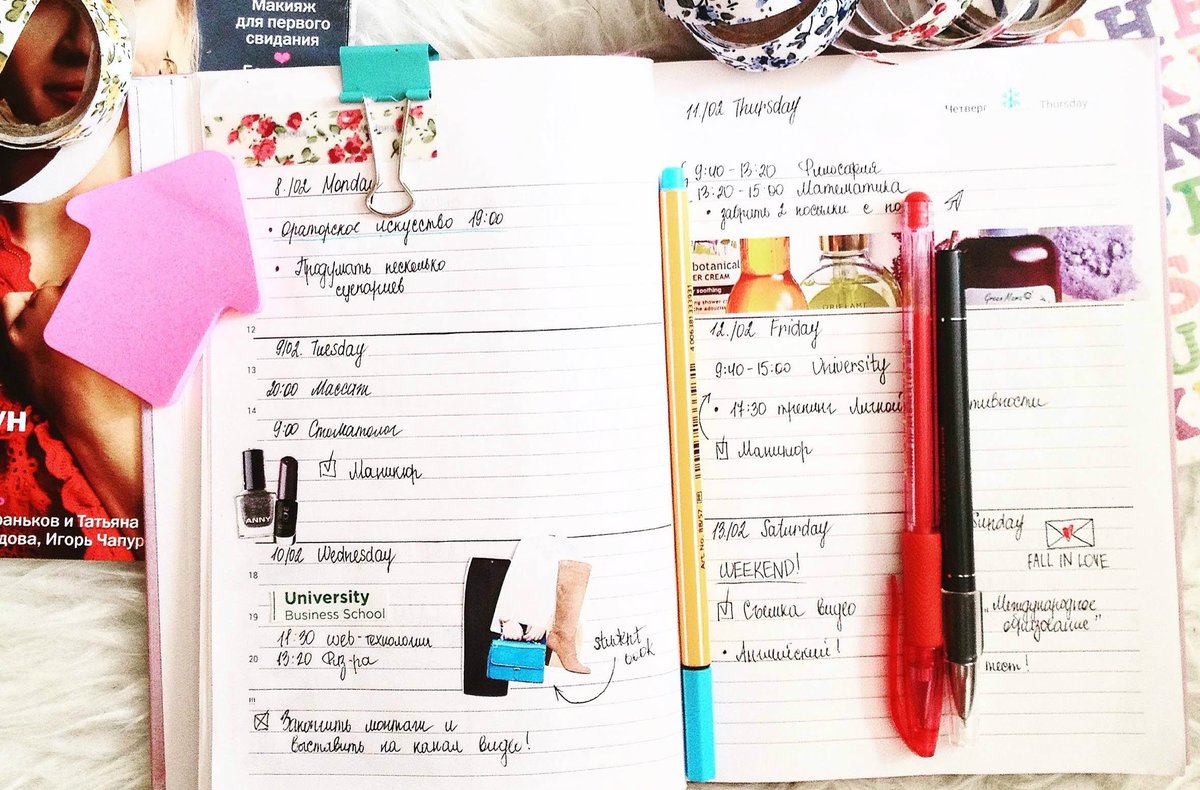 Макияж
для первого
свидания
8./02 Monday
• Ораторское искусство 19:00
• Продумать несколько
сценариев
12
9/02. Tuesday
13
20:00 Массаж
14
9:00 Стоматолог
Маникюр
ANNY
10/02 Wednesday
18
University
Business School
19
11:30 web-технологии
20
13:20 Физ-ра
student
look
Закончить монтаж и
выставить на канал видео!
УН
раньков и Татьяна
дова, Игорь Чапур
11./02 Thursday
Четверг Thursday
9:40-13:20 Философия
13:20-15:00 Математика
• забрить 2 посылки с по
botanical
ER CREAM
soothing
ORIFLAME
Green Mama
12./02 Friday
9:40-15:00 University
• 17:30 тренинг Личной тивности
Маникюр
13./02 Saturday
WEEKEND!
Съёмка видео
• Английский!
Sunday
FALL IN LOVE
„Международное
образование"
тест!
4 006381333931
Art. No. 88/57